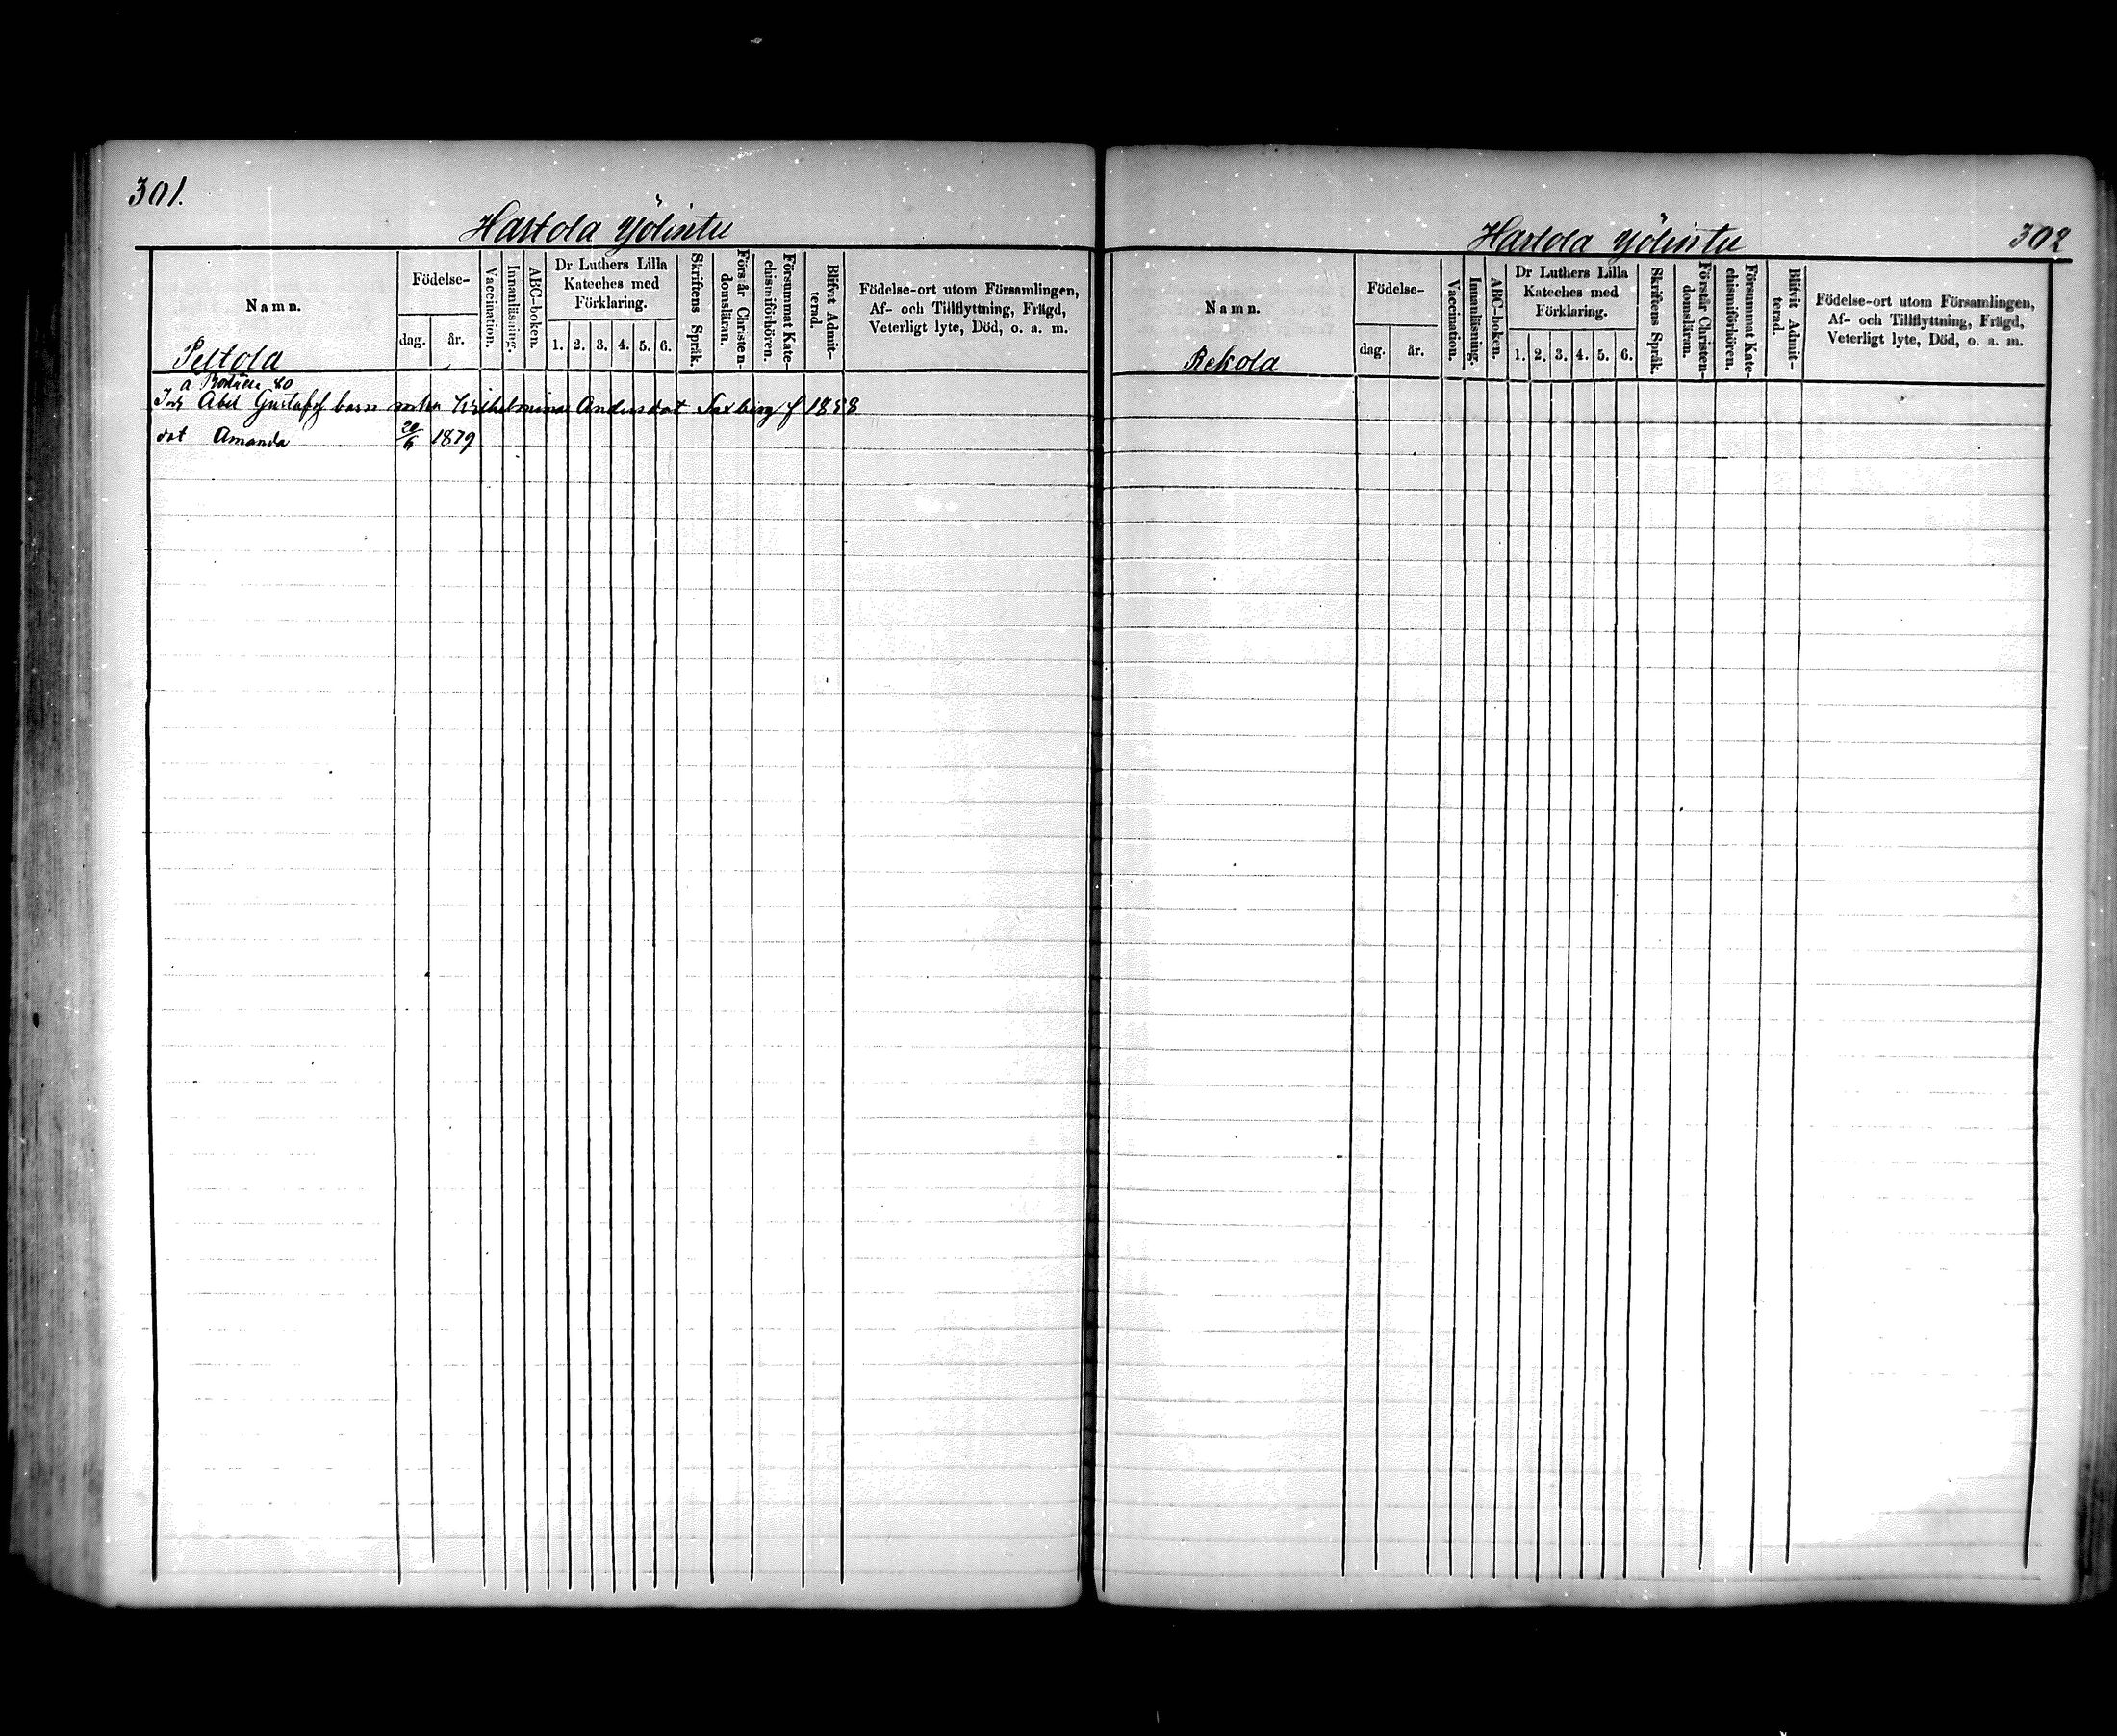 301.
Hartola Yölintu
Namn.
Födelse-
dag.
år.
Vaccination.
Innanläsning.
ABC-boken.
Dr Luthers Lilla
Kateches med
Förklaring.
1. 2. 3. 4. 5. 6.
Skriftens Språk.
Förstår Christen-
domsläran.
Försummat Kate-
chismiförhören.
Blifvit Admit-
terad.
Födelse-ort utom Församlingen,
Af- och Tillflyttning, Frägd,
Veterligt lyte, Död, o. a. m.
Peltola
a 80
Inh Abel Gustafss barn Wilhelmina Andersdot Saxberg f 1858
dot Amanda 20/6 1879
Hartola Yölintu
302
Namn.
Födelse-
dag.
år.
Vaccination.
Innanläsning.
ABC-boken.
Dr Luthers Lilla
Kateches med
Förklaring.
1. 2. 3. 4. 5. 6.
Skriftens Språk.
Förstår Christen-
domsläran.
Försummat Kate-
chismiförhören.
Blifvit Admit-
terad.
Födelse-ort utom Församlingen,
Af- och Tillflyttning, Frägd,
Veterligt lyte, Död, o. a. m.
Rekola